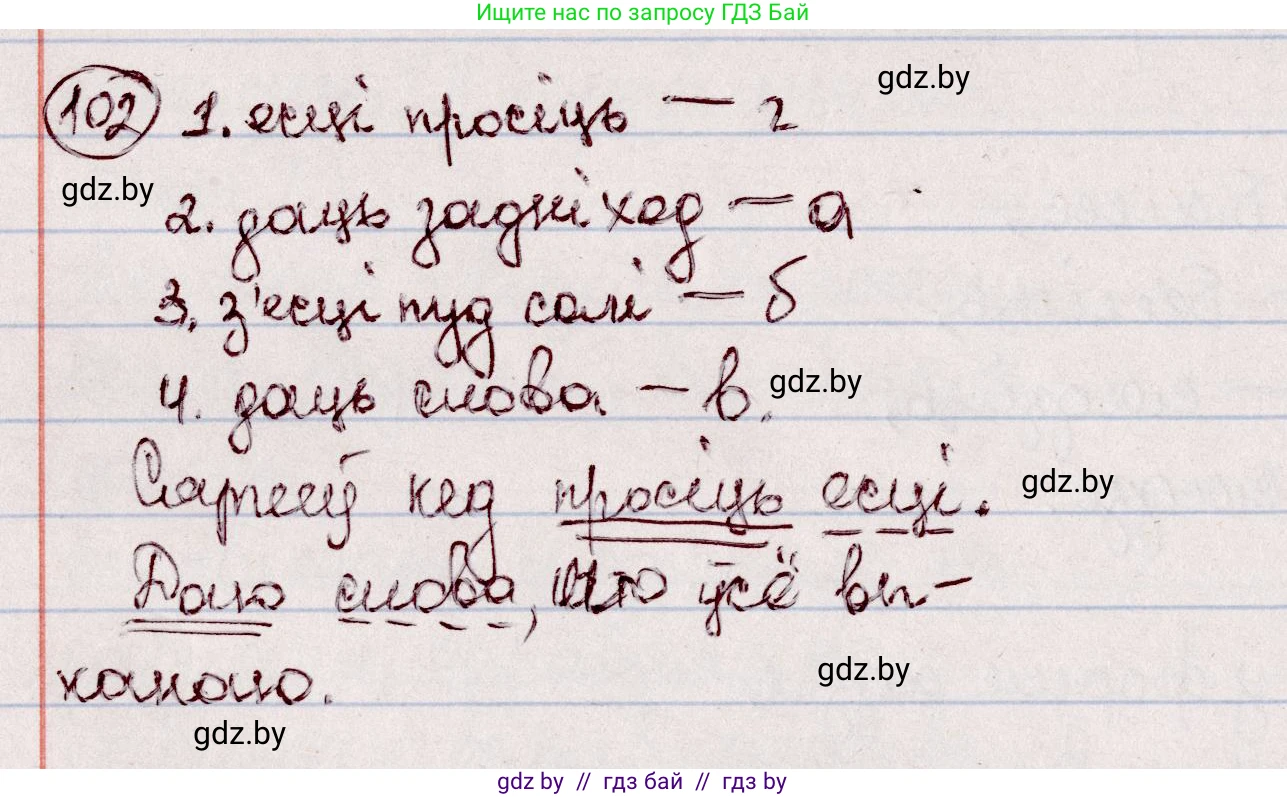 Ищите нас по запросу ГДЗ Бай
102 1. есці просіць — г
gdz.by
gdz.by
2. даць задні ход — а
3. з'есці пуд солі — б
4. даць слова — в.
gdz.by
кед просіць есці.
gdz.by
Даю слова, што ўсё вы-
канаю.
gdz.by
gdz.by
gdz.by // гдз бай // гдз by